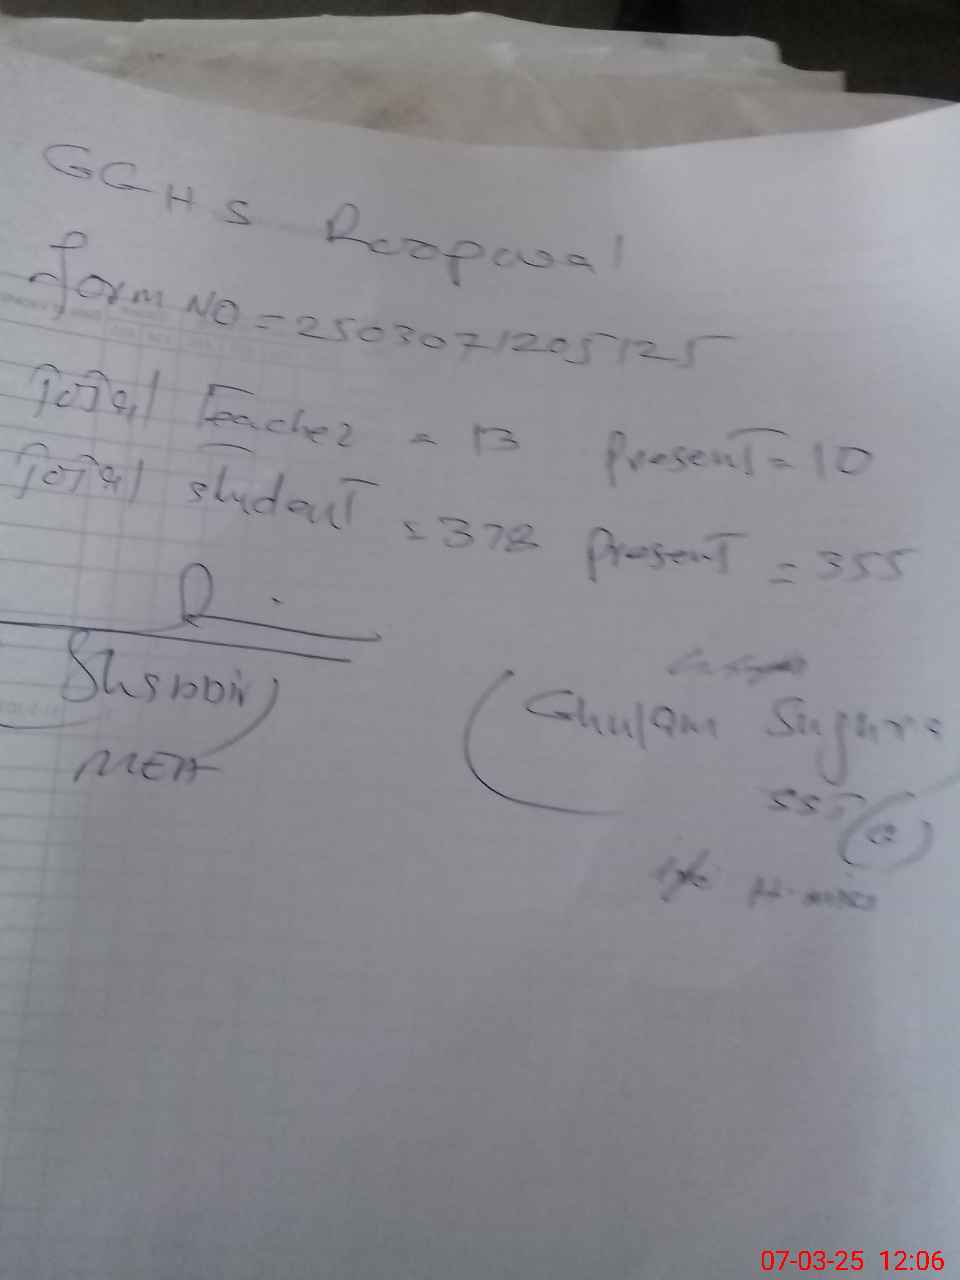 GGHS Roopwal
form NO = 2503071205125
Total Teacher = 13 Present = 10
Total student = 378 Present = 355
Shabbir)
MEA
(Ghulam Sugura
SST (G)
07-03-25 12:06